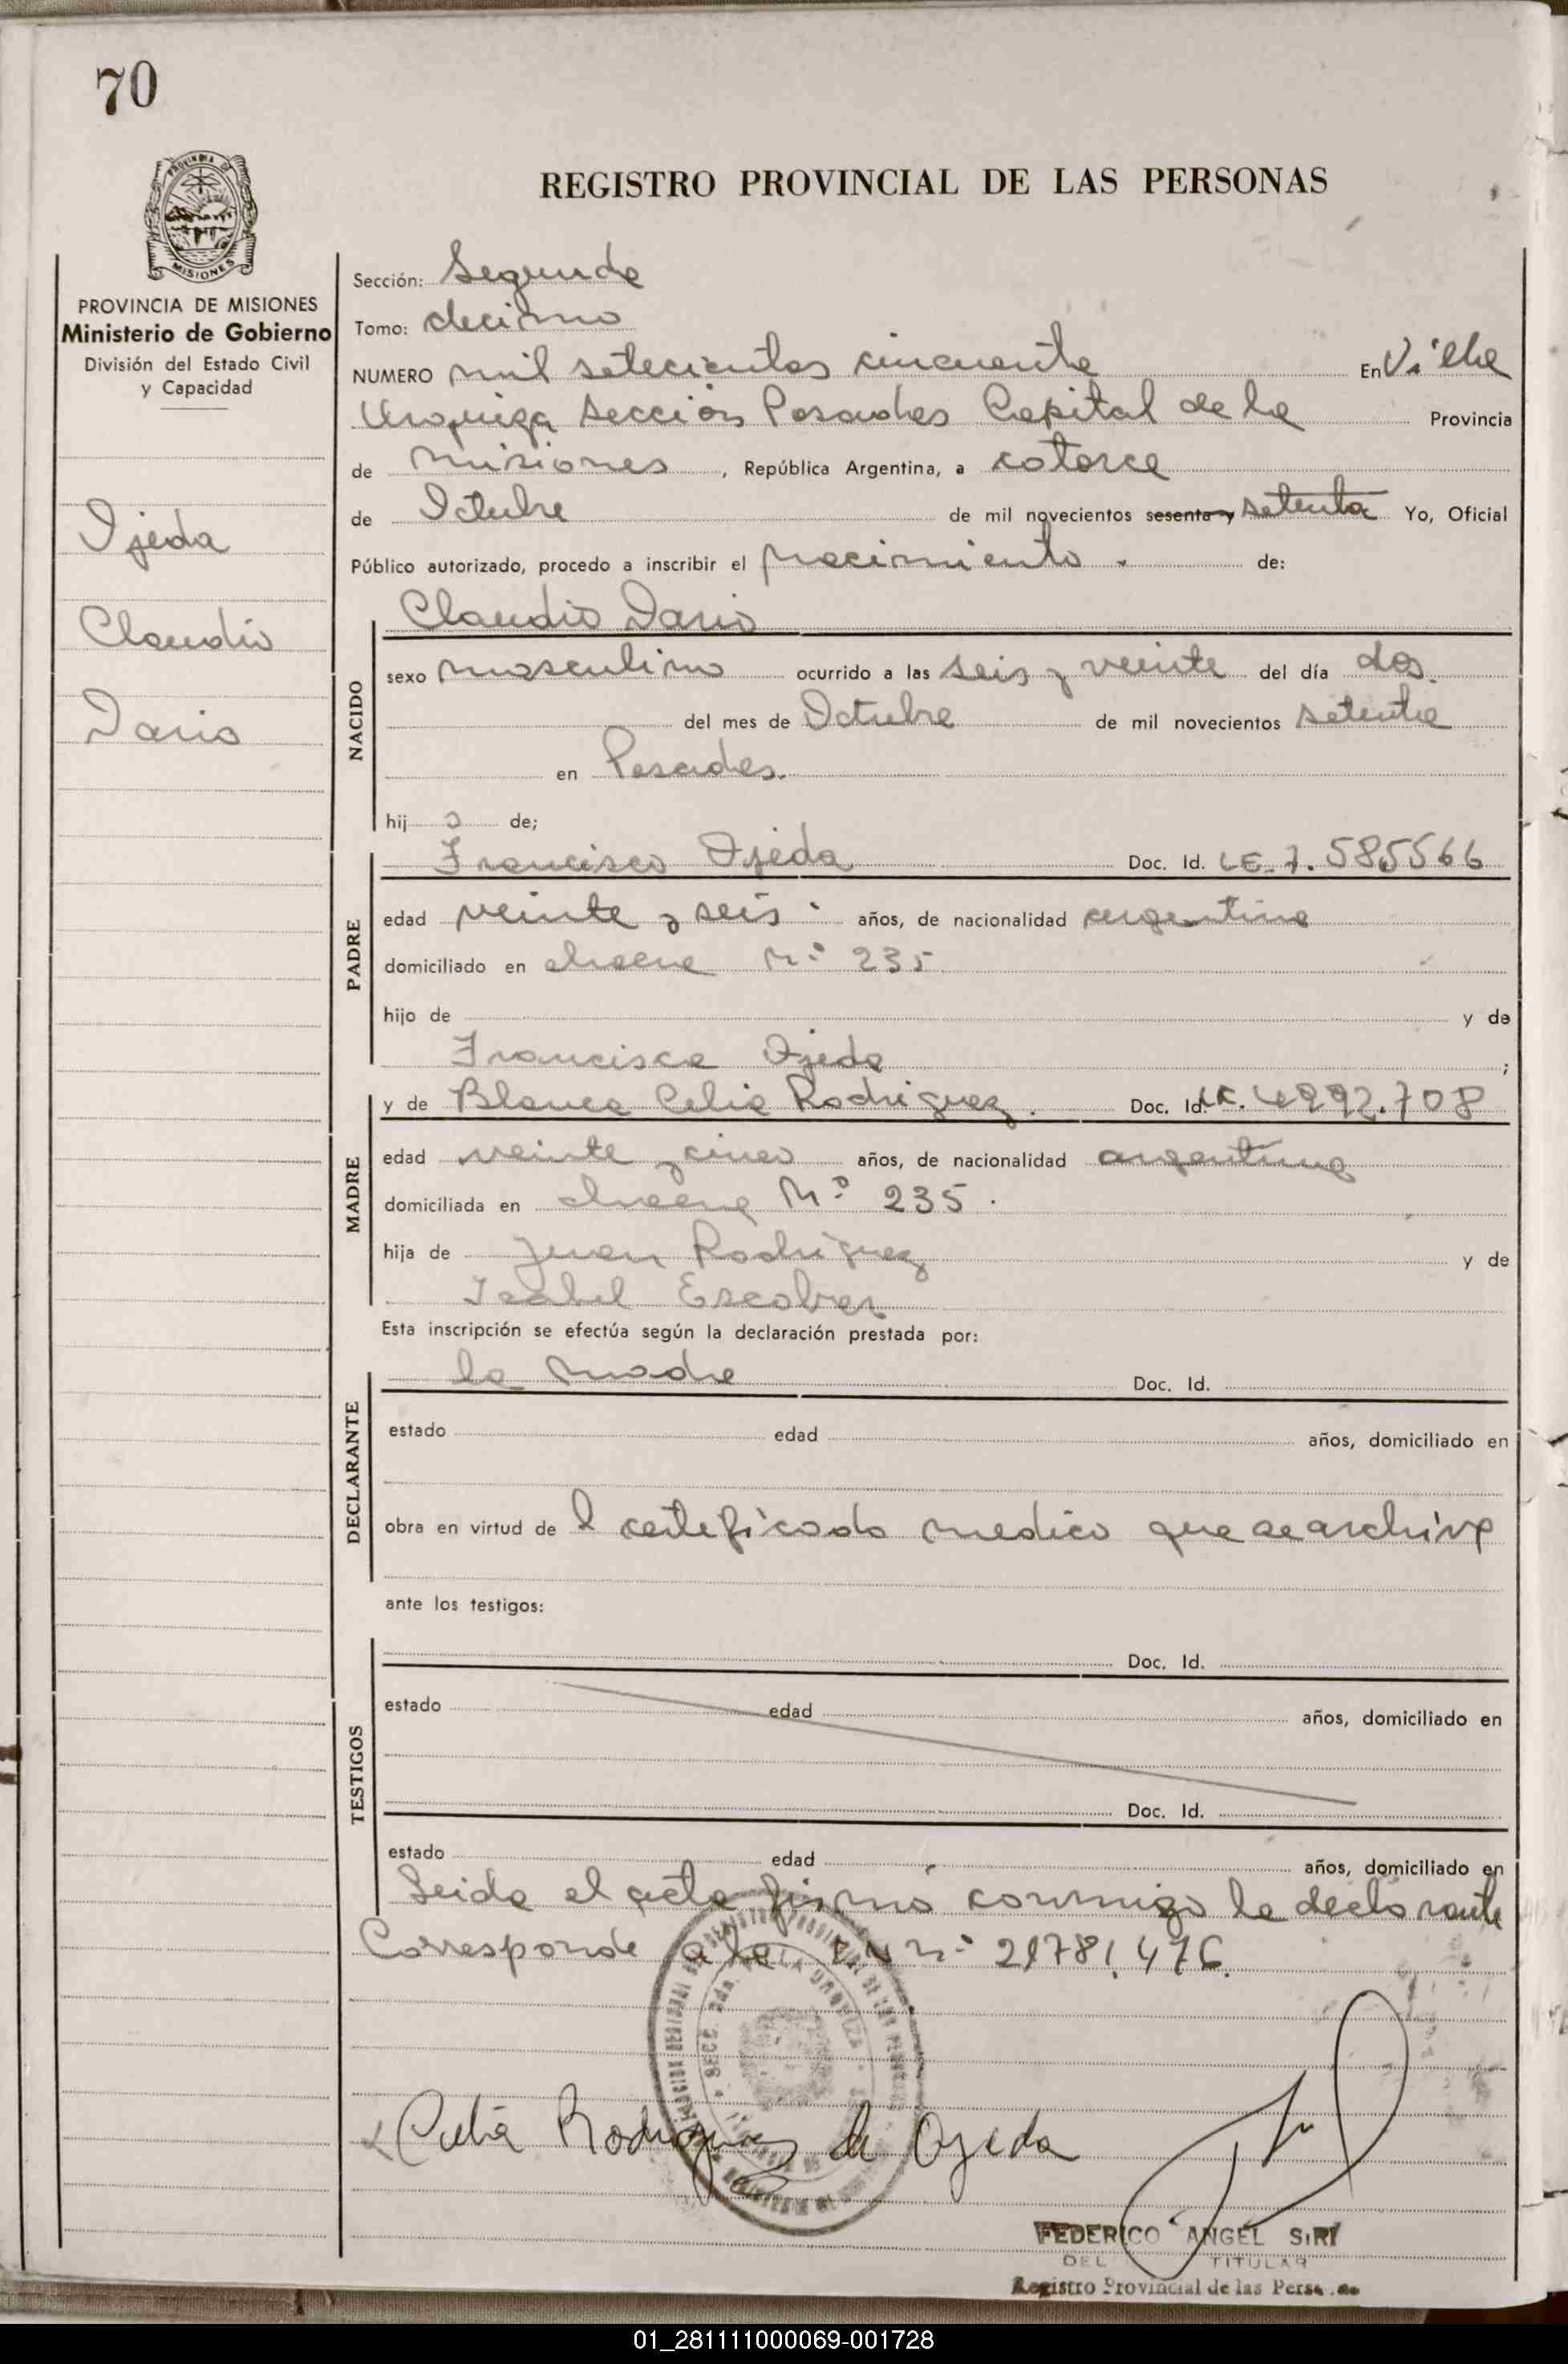 70
REGISTRO PROVINCIAL DE LAS PERSONAS
MISIONES
PROVINCIA DE MISIONES
Ministerio de Gobierno
División del Estado Civil
y Capacidad
Ojeda
Claudio
Dario
Sección: Segunda
Tomo: decimo
NUMERO mil setecientos cincuenta En Villa
Urquiza Sección Posadas Capital de la Provincia
de Misiones, República Argentina, a catorce
de Octubre de mil novecientos sesenta y setenta Yo, Oficial
Público autorizado, procedo a inscribir el nacimiento de:
NACIDO
Claudio Dario
sexo masculino ocurrido a las seis y veinte del día dos
del mes de Octubre de mil novecientos setenta
en Posadas.
hij o de;
PADRE
Francisco Ojeda Doc. Id. LE. 7. 585566
edad veinte y seis años, de nacionalidad argentina
domiciliado en Nº 235
hijo de y de
Francisca Ojeda ;
MADRE
y de Blanca Celia Rodriguez. Doc. Id. LC. 4992.708
edad veinte y cinco años, de nacionalidad argentina
domiciliada en Nº 235.
hija de Juan Rodriguez y de
Isabel Escobar
Esta inscripción se efectúa según la declaración prestada por:
DECLARANTE
la madre Doc. Id.
estado edad años, domiciliado en
obra en virtud de l certificado medico que se archiva
ante los testigos:
TESTIGOS
Doc. Id.
estado edad años, domiciliado en
Doc. Id.
estado edad años, domiciliado en
Leida el acta firmó conmigo la declarante
Corresponde a la nº 21781.476.
Celia Rodriguez de Ojeda
FEDERICO ANGEL SIRI
DEL TITULAR
Registro Provincial de las Perso
01_281111000069-001728